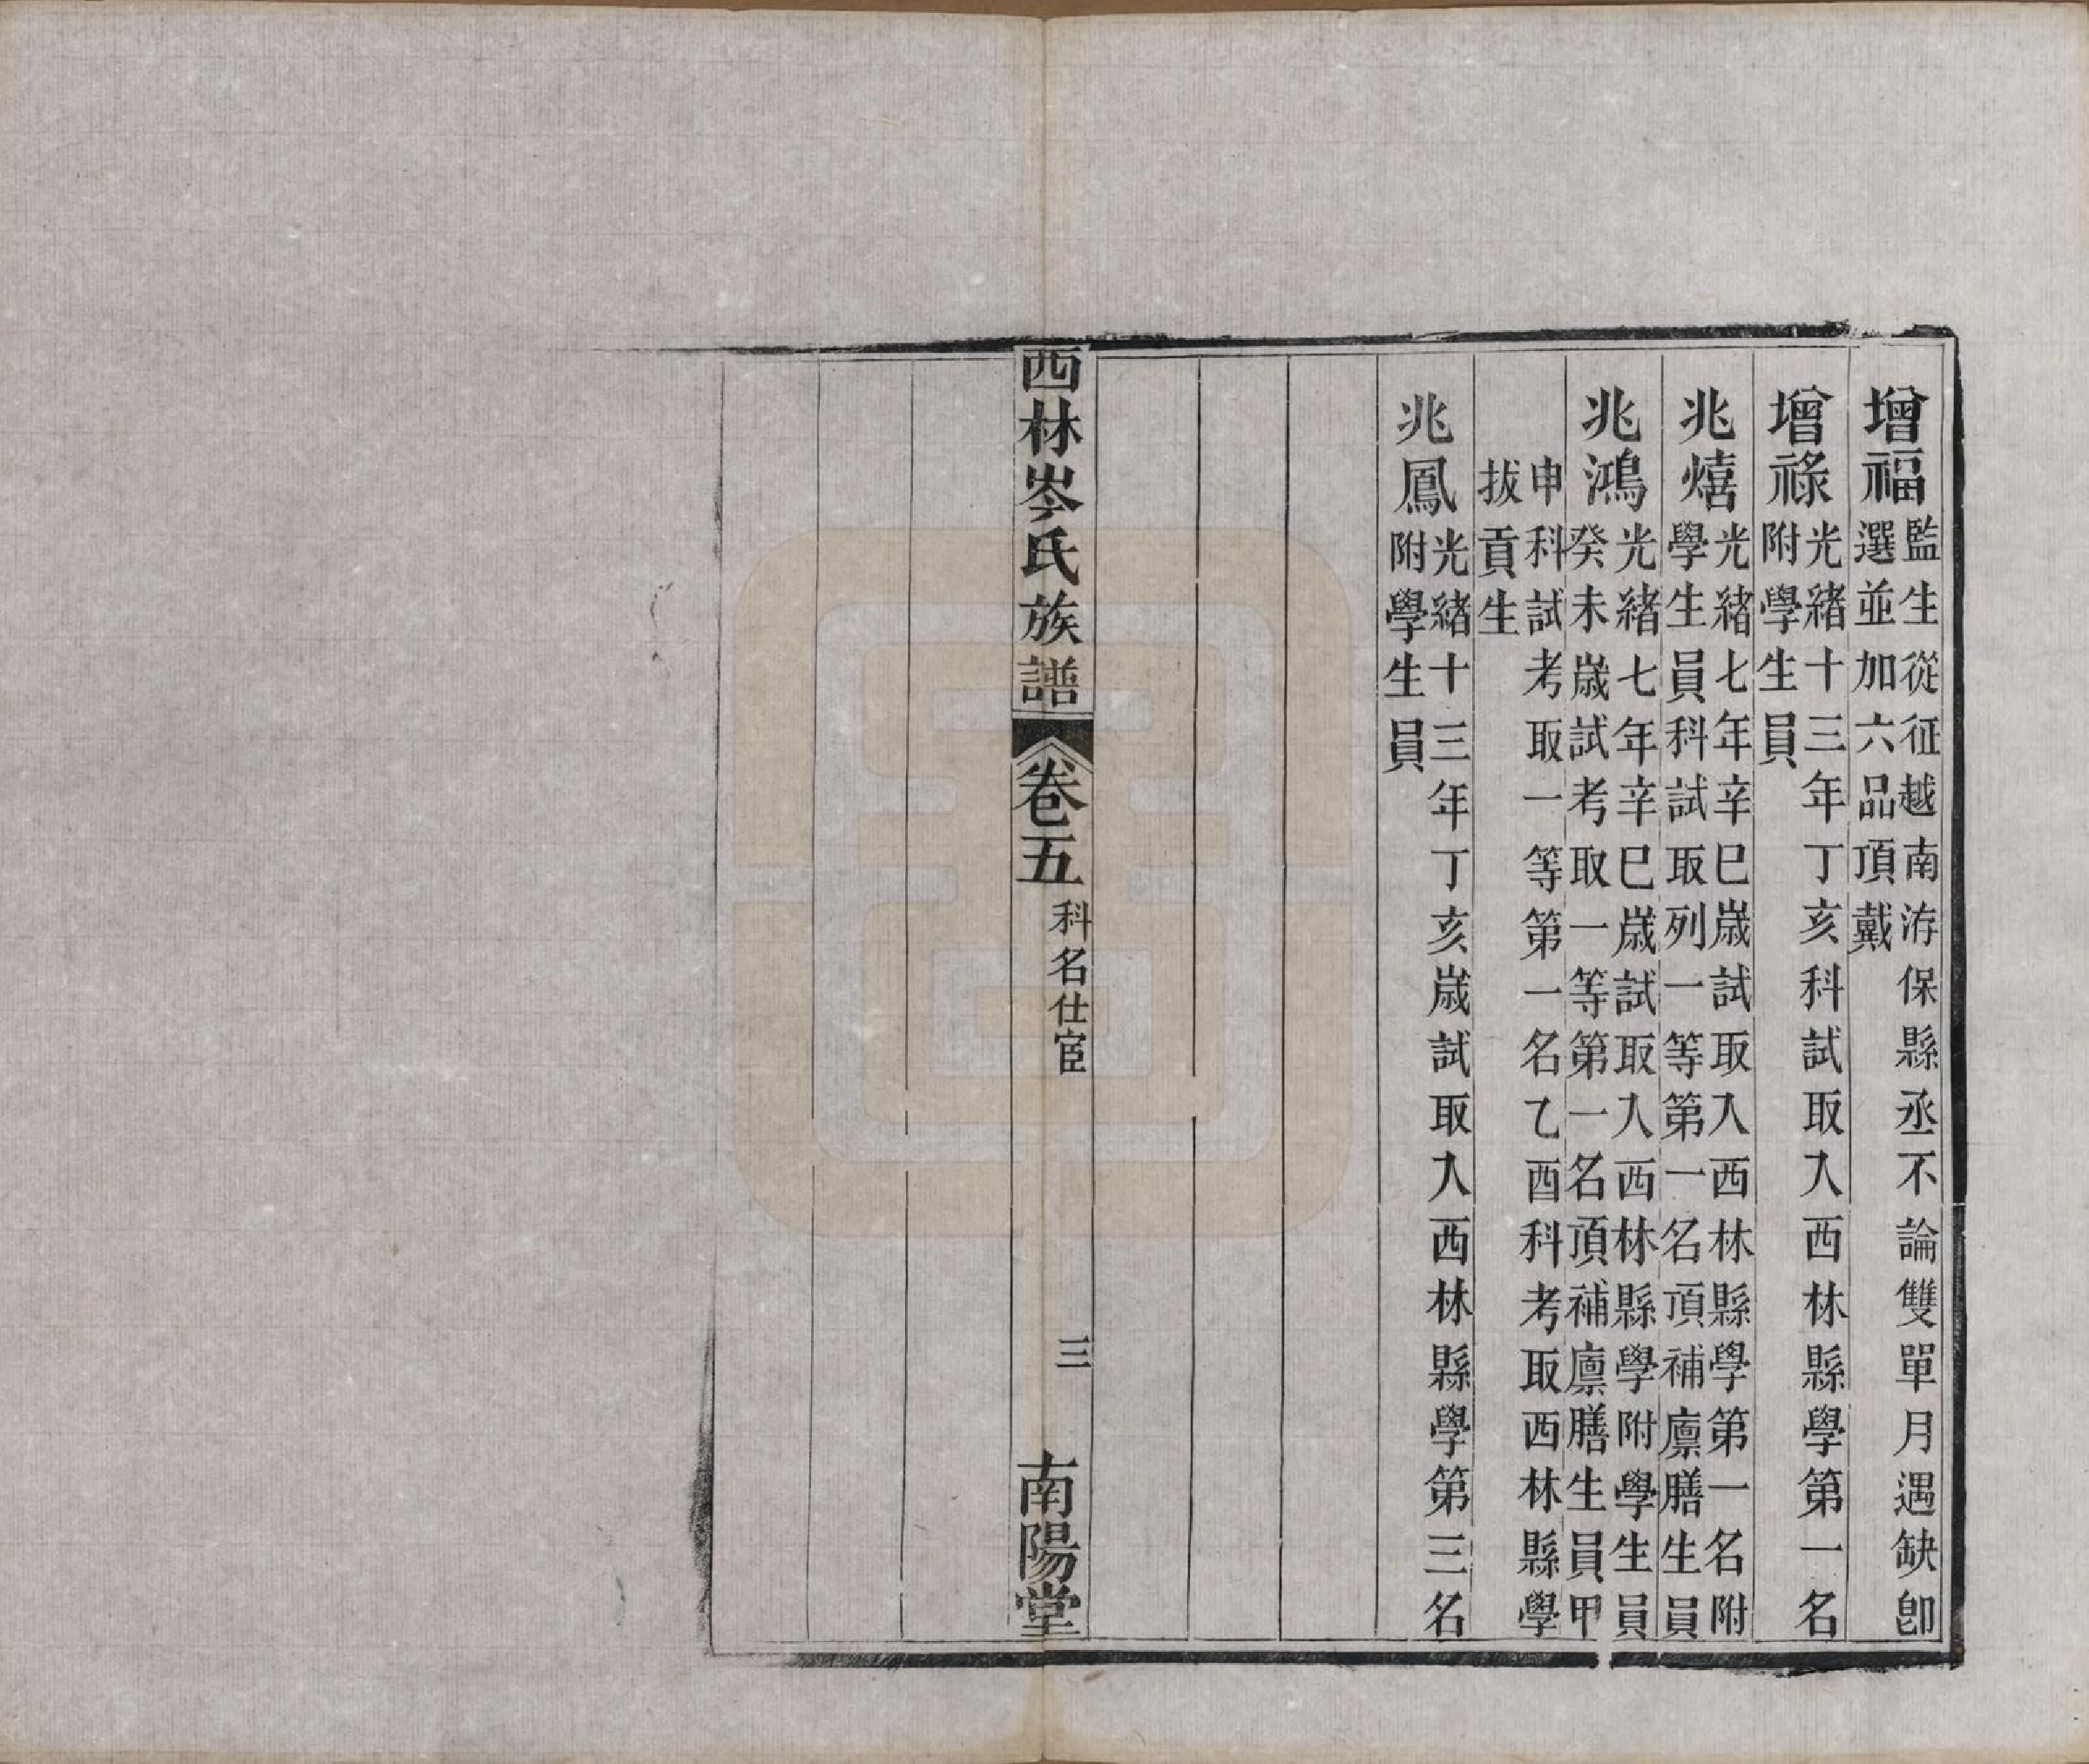 增福
監生從征越南洊保縣丞不論雙單月遇缺卽
選並加六品頂戴
增祿
光緒十三年丁亥科試取入西林縣學第一名
附學生員
兆熺
光緒七年辛巳歲試取入西林縣學第一名附
學生員科試取列一等第一名頂補廪膳生員
兆鴻
光緒七年辛巳歲試取入西林縣學附學生員
癸未歲試考取一等第一名頂補廪膳生員甲
申科試考取一等第一名乙酉科考取西林縣學
拔貢生
兆鳳
光緒十三年丁亥歲試取入西林縣學第三名
附學生員
西林岑氏族譜
卷五
科名仕宦
三
南陽堂